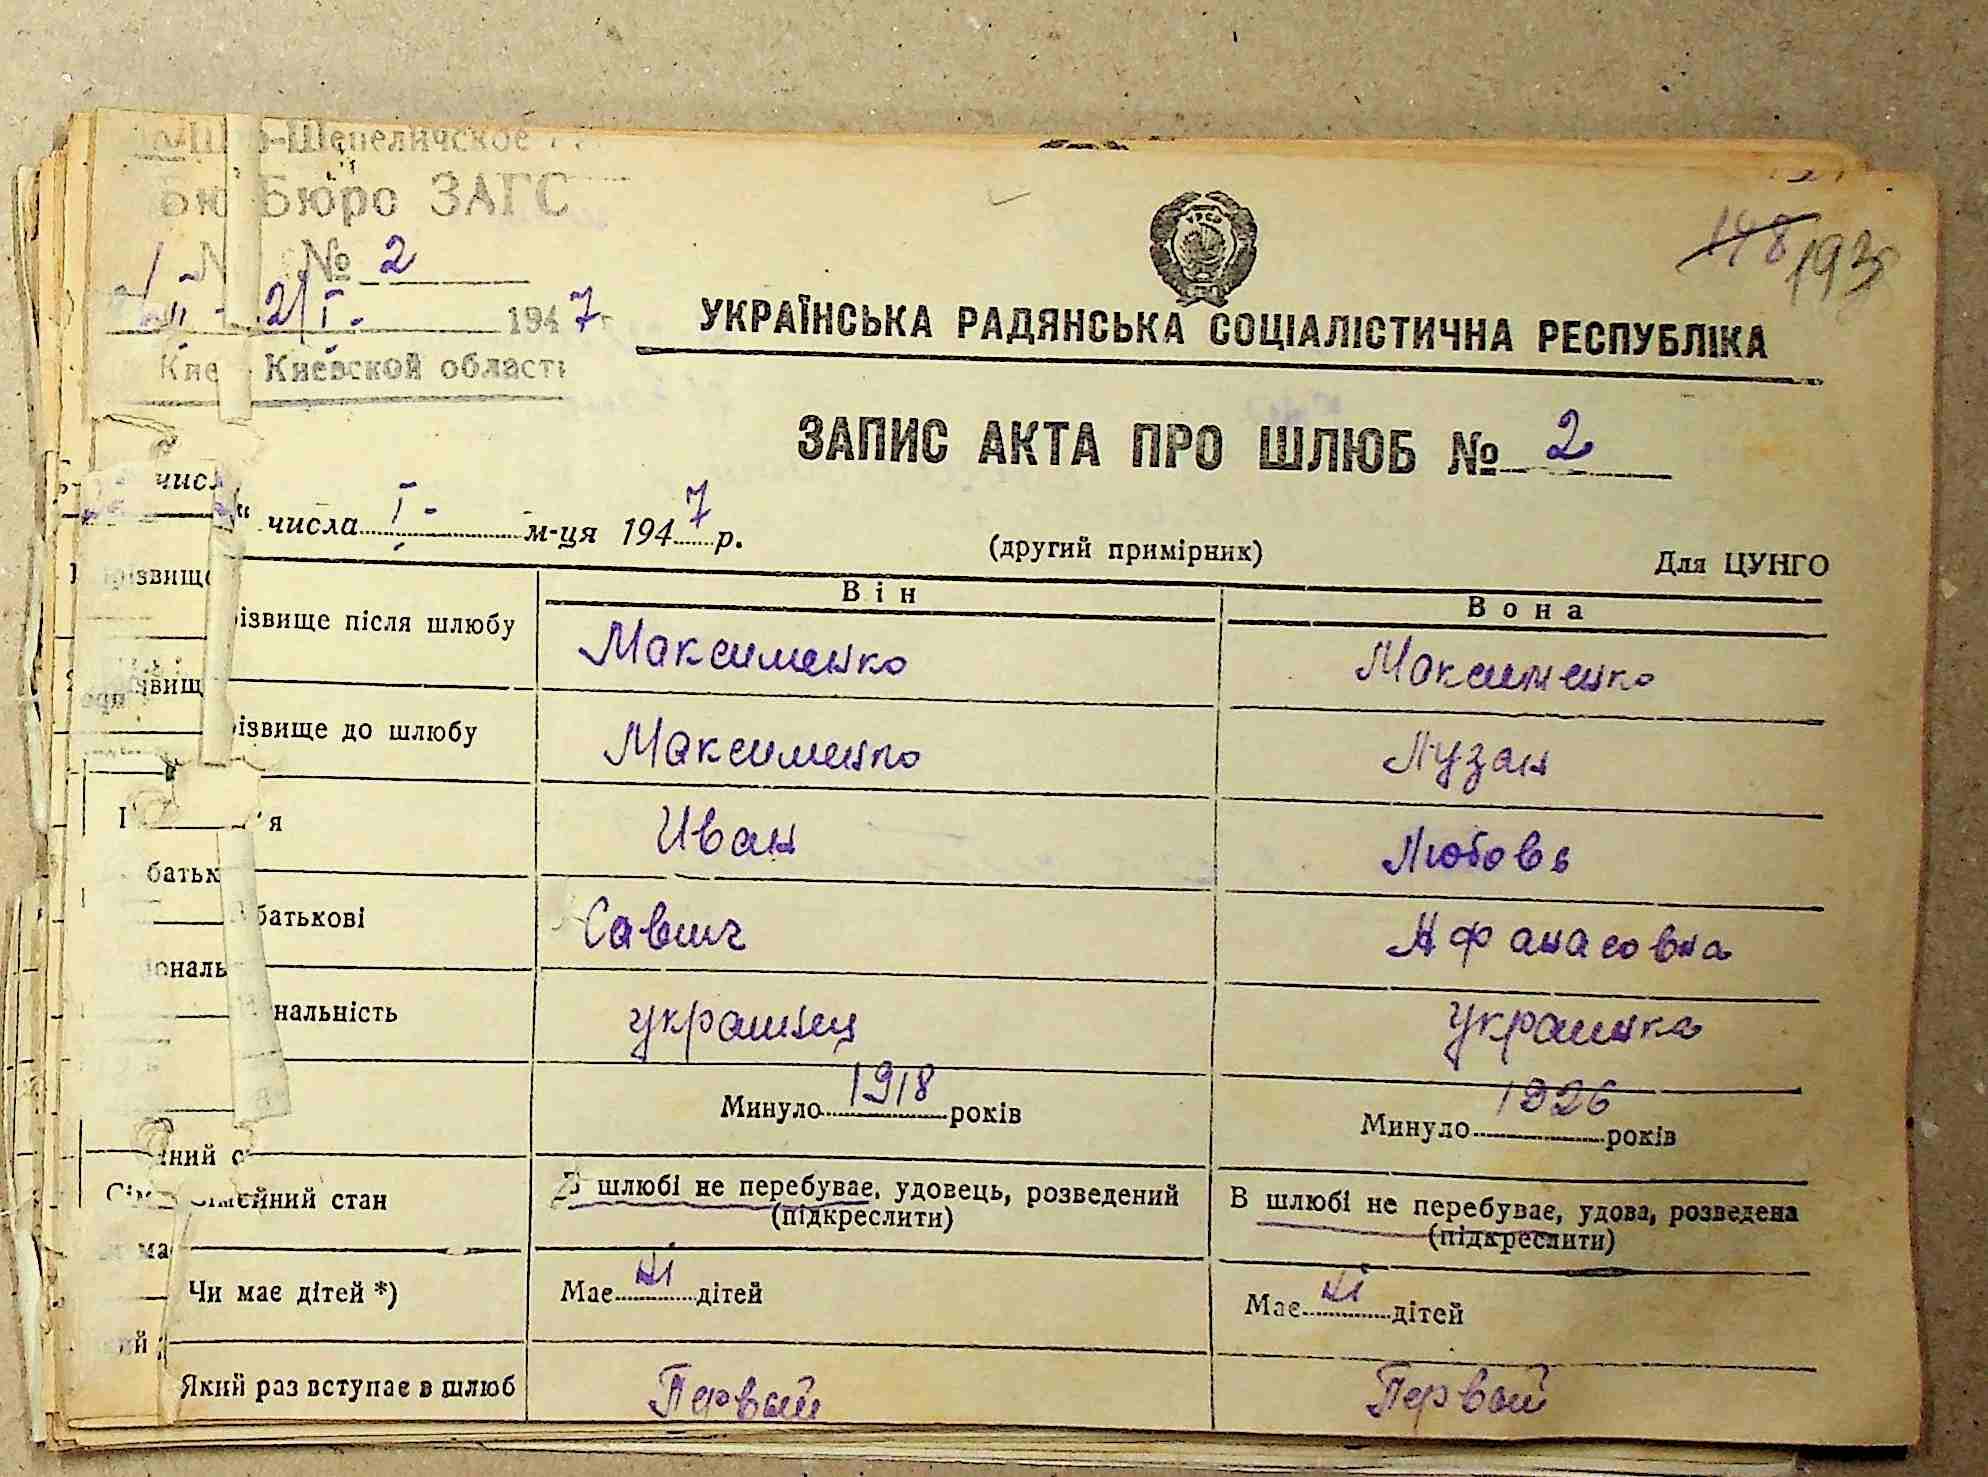 -Шепеличское
Бюро ЗАГС
№ 2
2/I. 1947
Киевской област
УРСР
148 193
УКРАЇНСЬКА РАДЯНСЬКА СОЦІАЛІСТИЧНА РЕСПУБЛІКА
ЗАПИС АКТА ПРО ШЛЮБ № 2
числа I- м-ця 1947 р.
(другий примірник)
Для ЦУНГО
Він
Вона
різвище після шлюбу
Максименко
Максименко
різвище до шлюбу
Максименко
Лузан
'я
Иван
Любовь
батькові
Савич
Афанасовна
нальність
украинец
украинка
Минуло 1918 років
Минуло 1926 років
Сімейний стан
В шлюбі не перебуває, удовець, розведений
(підкреслити)
В шлюбі не перебуває, удова, розведена
(підкреслити)
Чи має дітей *)
Має ні дітей
Має ні дітей
Який раз вступає в шлюб
Первый
Первой